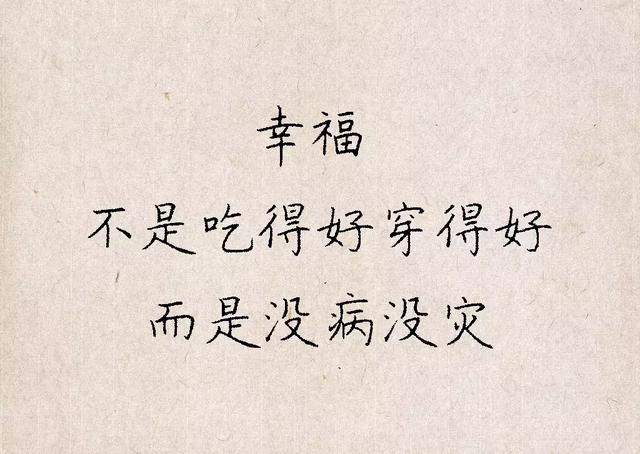 幸福
不是吃得好穿得好
而是没病没灾